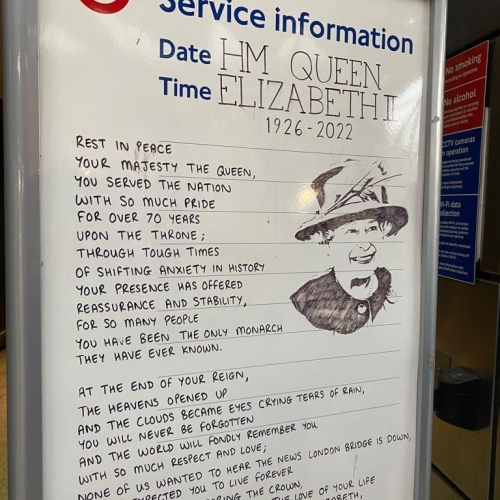 Service information
Date HM QUEEN
Time ELIZABETH II
1926-2022
REST IN PEACE
YOUR MAJESTY THE QUEEN,
YOU SERVED THE NATION
WITH SO MUCH PRIDE
FOR OVER 70 YEARS
UPON THE THRONE;
THROUGH TOUGH TIMES
OF SHIFTING ANXIETY IN HISTORY
YOUR PRESENCE HAS OFFERED
REASSURANCE AND STABILITY,
FOR SO MANY PEOPLE
YOU HAVE BEEN THE ONLY MONARCH
THEY HAVE EVER KNOWN.
AT THE END OF YOUR REIGN,
THE HEAVENS OPENED UP
AND THE CLOUDS BECAME EYES CRYING TEARS OF RAIN,
YOU WILL NEVER BE FORGOTTEN
AND THE WORLD WILL FONDLY REMEMBER YOU
WITH SO MUCH RESPECT AND LOVE;
NONE OF US WANTED TO HEAR THE NEWS LONDON BRIDGE IS DOWN,
YOU TO LIVE FOREVER
THE CROWN,
THE LOVE OF YOUR LIFE
No smoking
No alcohol
CCTV cameras
in operation
Wi-Fi data
collection